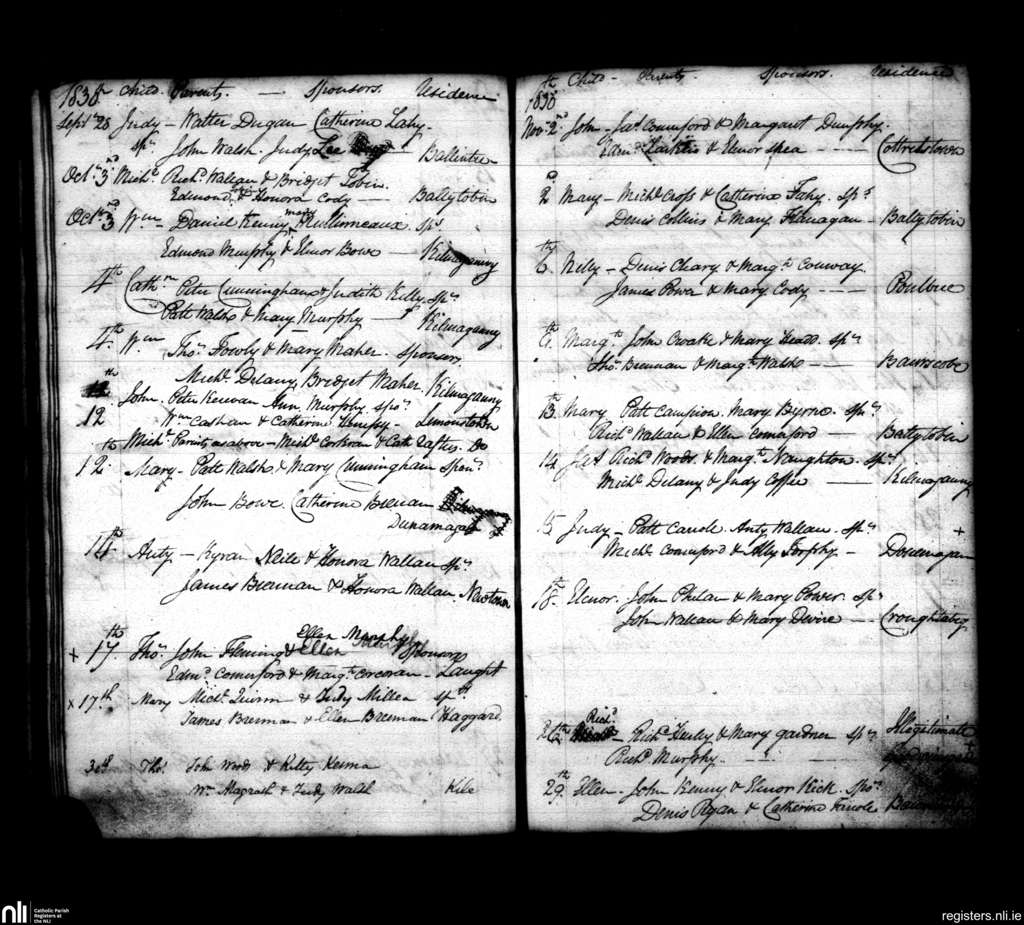 1838 Child Parents. — Sponsors. Residence
Sept. 28 Judy - Walter Dugan Catherine Lahy.
Sprs John Walsh. Judy Lee Ballintee
Octr 3rd Michl Richd Wallan & Bridget Tobin.
Edmond & Honora Cody — Ballytobin
Octr 3rd Wm - Daniel Kenny Mary Mullimeaux. sprs
Edmond Murphy & Elenor Bowe - Kilmaganny
4th Cathrn Peter Cunningham & Judith Kelly. sprs
Patt Walsh & Mary Murphy — Kilmaganny
4th Wm Thos Fowly & Mary Maher. Sponsors
Michl Delany Bridget Maher. Kilmaganny
12th John. Peter Kerwan Ann Murphy spors
12 Wm Cashan & Catherine Lemonstown
th Michl Parents as above - Michl Corkran & Cath Lafties. Do
12. Mary - Patt Walsh & Mary Cunningham spon
John Bowe. Catherine Brenan
Dunamagan
14th Anty - Kyran Neile & Honora Wallan sprs
James Brennan & Honora Wallan. Newtown
Ellen Murphy
+ 17th Thos John Fleming & Ellen Sponsors
Edmd Comerford & Margt Corcoran - Caught
x 17th Mary Michl Quinn & Judy Millea sprs
James Brennan & Ellen Brennan Haggard.
30th Thos. John Woods & Kitty
Wm Magrath & Judy Walsh Kile
Child - Parents. Sponsors. Residence
1838
Novr 2nd John - Jas Comerford & Margaret Dunphy.
Edmd & Elenor Shea — Cottrelstown
2 Mary - Michl Cross & Catherine Fahy. Sprs
Denis Collins & Mary Flanagan - Ballytobin
6th Nelly - Denis Cleary & Margt Conway.
James Power & Mary Cody — Poulvue
6th Margt John Croake & Mary Headd. sprs
Thos Brennan & Margt Walsh — Baurscobe
13th Mary Patt Campion. Mary Byrne. sprs
Richd Wallan & Ellen Comerford — Ballytobin
14 Jas Richd Woods. & Margt Naughton. sprs
Michl Delany & Judy Coffee — Kilmaganny
15 Judy - Patt Carrole Anty Wallan. sprs +
Michl Comerford & Ally Forphy - Dunemagan
18th Elenor. John Phelan & Mary Power. sprs
John Wallan & Mary Divine — Croughtabeg
26th Richd - Richd Fenly & Mary Gardner sprs Illegitimate
Richd Murphy. +
29th Ellen. John Kenny & Elenor Kick. Spors
Denis Ryan & Catherine
nli Catholic Parish
Registers at
the NLI
registers.nli.ie